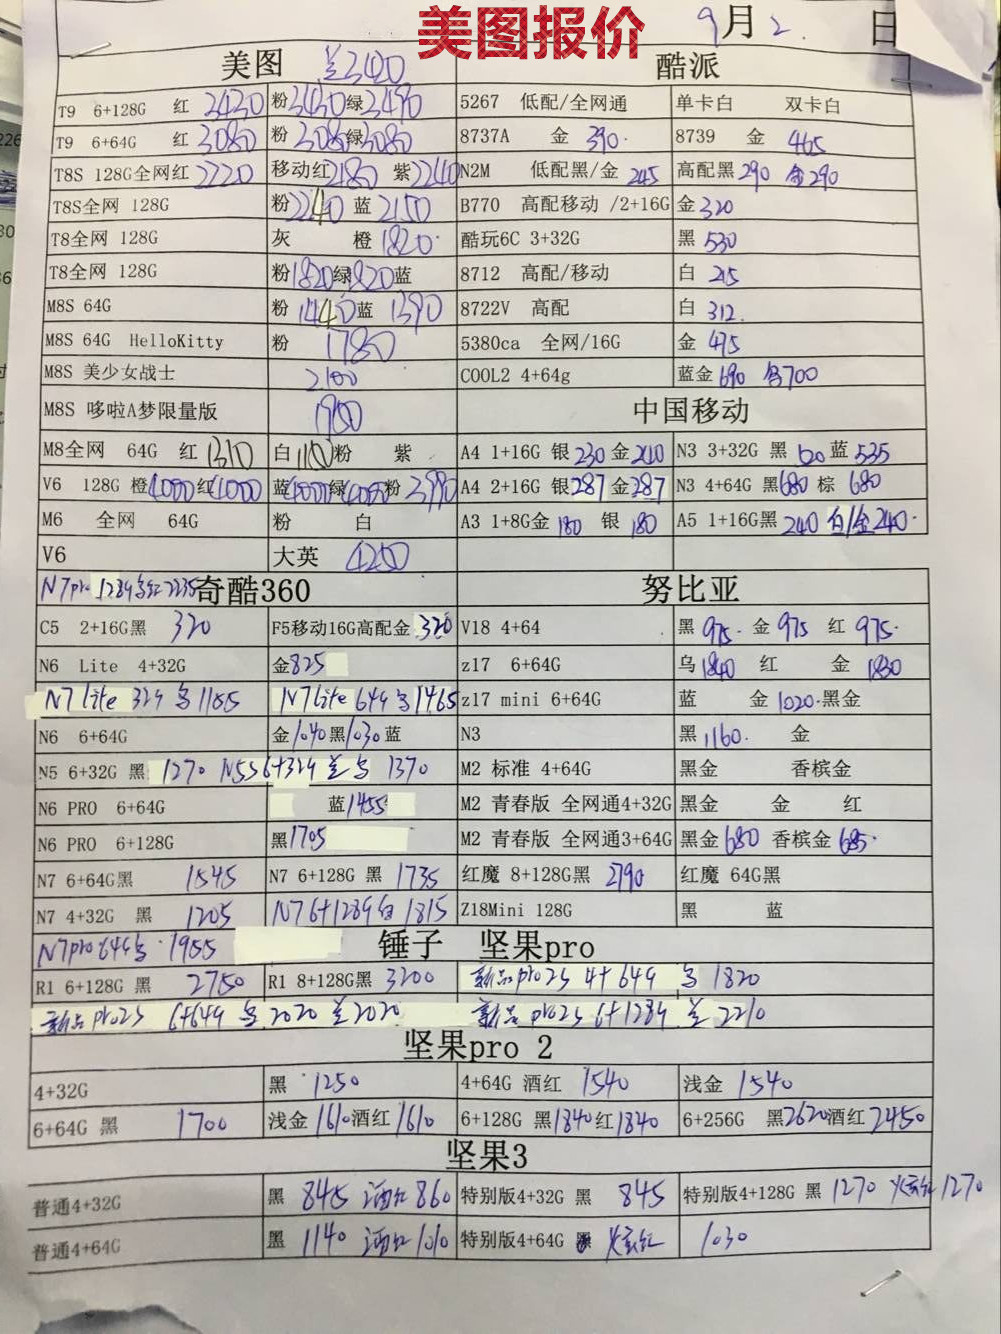 美图报价
9月2.日
美图 兰3420 酷派
T9 6+128G 红 粉3430绿3490 5267 低配/全网通 单卡白 双卡白
T9 6+64G 红 3080 粉 3080绿3080 8737A 金 390. 8739 金 465
T8S 128G全网红 2220 移动红2180 紫2240 N2M 低配黑/金 245 高配黑 290 金290
T8S全网 128G 粉2240 蓝 2150 B770 高配移动 /2+16G 金 320
T8全网 128G 灰 橙 1820. 酷玩6C 3+32G 黑 530
T8全网 128G 粉1820绿1820蓝 8712 高配/移动 白 215
M8S 64G 粉 1440蓝 1390 8722V 高配 白 312.
M8S 64G HelloKitty 粉 1780 5380ca 全网/16G 金 475
M8S 美少女战士 2100 COOL2 4+64g 蓝金 690 700
M8S 哆啦A梦限量版 1950 中国移动
M8全网 64G 红 1310 白 粉 紫 A4 1+16G 银 230 金 240 N3 3+32G 黑 蓝 535
V6 128G 橙4000红4000 蓝4000绿4000粉 3990 A4 2+16G 银287 金287 N3 4+64G 黑680 棕 680
M6 全网 64G 粉 白 A3 1+8G金 180 银 180 A5 1+16G黑 240 白/金240.
V6 大英 4250
N7pro 128G 红2235 奇酷360 努比亚
C5 2+16G黑 320 F5移动16G高配金 320 V18 4+64 黑 975. 金 975 红 975.
N6 Lite 4+32G 金825 z17 6+64G 乌 1840 红 金 1830
N7 lite 32G 1155 N7 lite 64G 1465 z17 mini 6+64G 蓝 金 1020.黑金
N6 6+64G 金1040黑1030蓝 N3 黑 1160. 金
N5 6+32G 黑 1270 N5S 6+32G 1370 M2 标准 4+64G 黑金 香槟金
N6 PRO 6+64G 蓝1455 M2 青春版 全网通4+32G 黑金 金 红
N6 PRO 6+128G 黑1705 M2 青春版 全网通3+64G 黑金 680 香槟金 685.
N7 6+64G黑 1545 N7 6+128G 黑 1735 红魔 8+128G黑 2790 红魔 64G黑
N7 4+32G 黑 1205 N7 6+128G 白 1815 Z18Mini 128G 黑 蓝
N7pro 64G 1955 锤子 坚果pro
R1 6+128G 黑 2750 R1 8+128G黑 3200 新品pro2s 4+64G 1820
新品pro2s 6+64G 2020 兰2020 新品pro2s 6+128G 兰 2210
坚果pro 2
4+32G 黑 1250 4+64G 酒红 1540 浅金 1540
6+64G 黑 1700 浅金 1610酒红 1610 6+128G 黑1840红1840 6+256G 黑2620酒红2450
坚果3
普通4+32G 黑 845 酒红 860 特别版4+32G 黑 845 特别版4+128G 黑 1270 1270
普通4+64G 黑 1140 酒红 1010 特别版4+64G 黑 1030